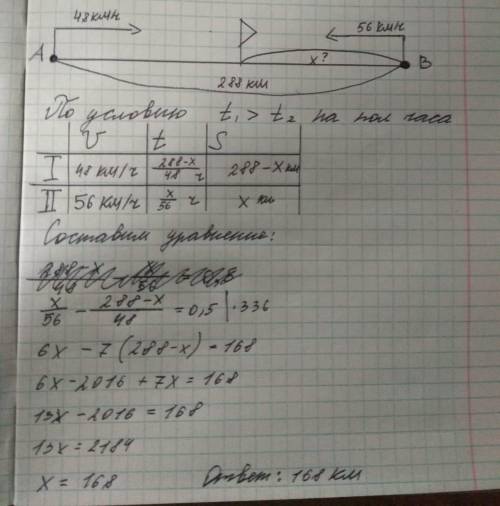 48 км/ч 56 км/ч
A x? B
288 км
По условию t₁ > t₂ на пол часа
v t S
I 48 км/ч (288-x)/48 ч 288-x км
II 56 км/ч x/56 ч x км
Составим уравнение:
x/56 - (288-x)/48 = 0,5 | ·336
6x - 7(288-x) = 168
6x - 2016 + 7x = 168
13x - 2016 = 168
13x = 2184
x = 168 Ответ: 168 км